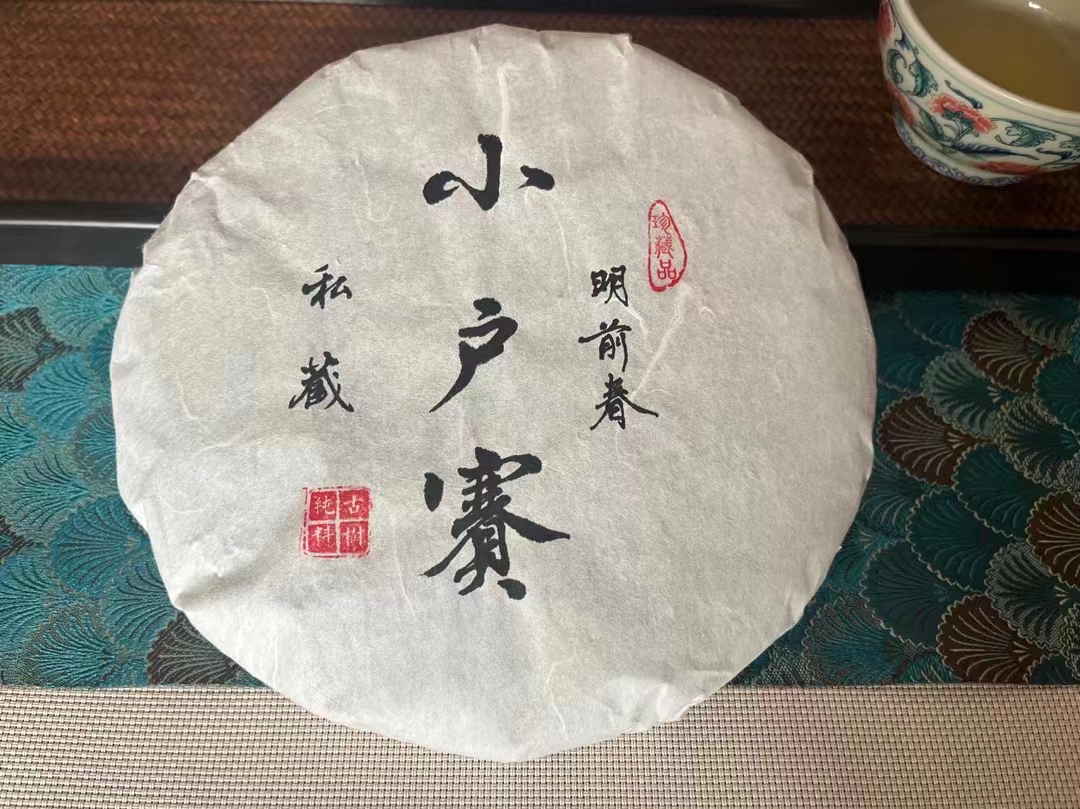 珍藏品
明前春
小户赛
私藏
古樹
純料